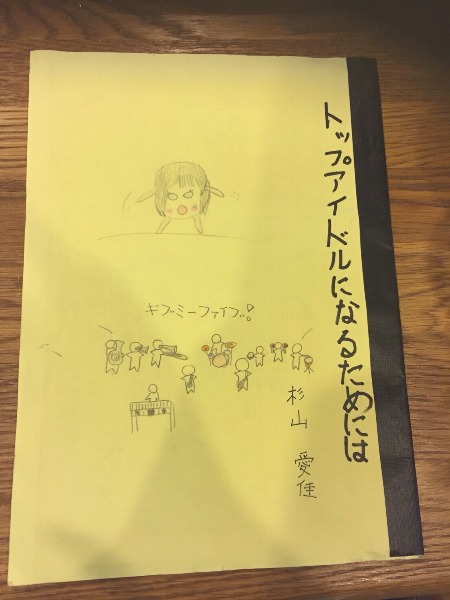 トップアイドルになるためには
ギブミーファイブッ!
杉山 愛佳